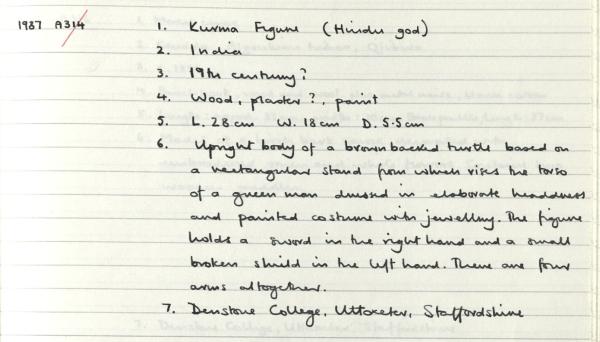 1987 A314 1. Kurma Figure (Hindu god)
2. India
3. 19th century?
4. Wood, plaster?, paint
5. L. 28cm W. 18cm D. 5.5cm
6. Upright body of a brown backed turtle based on
a rectangular stand from which rises the torso
of a green man dressed in elaborate headdress
and painted costume with jewellery. The figure
holds a sword in the right hand and a small
broken shield in the left hand. There are four
arms altogether.
7. Denstone College, Uttoxeter, Staffordshire